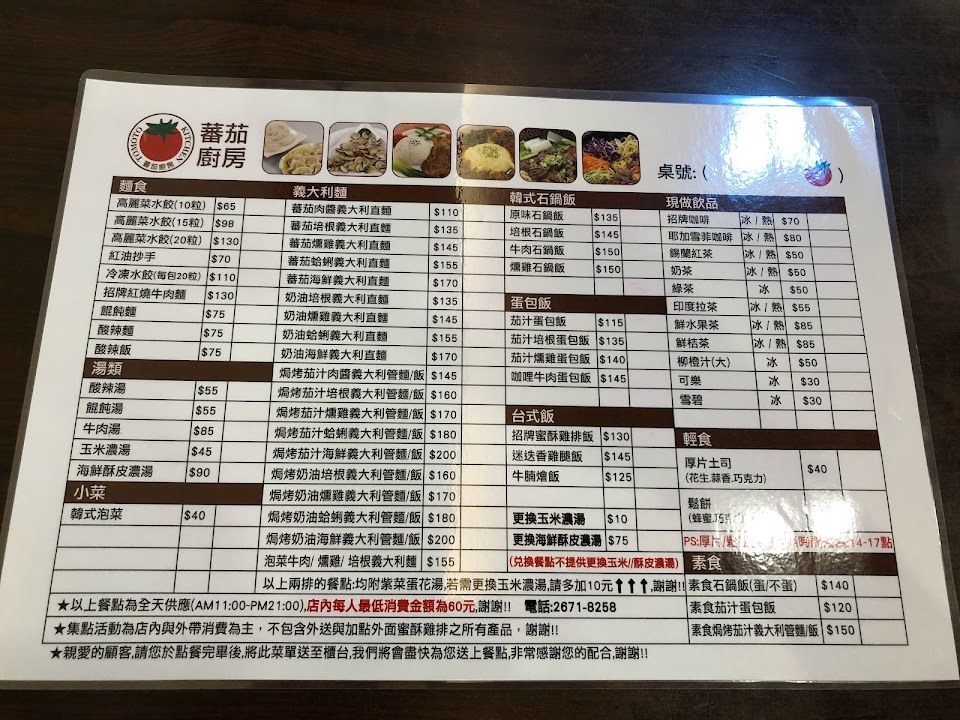 TOMOTO KITCHEN
蕃茄廚房
蕃茄
廚房
桌號:( )
麵食
高麗菜水餃(10粒) $65
高麗菜水餃(15粒) $98
高麗菜水餃(20粒) $130
紅油抄手 $70
冷凍水餃(每包20粒) $110
招牌紅燒牛肉麵 $130
餛飩麵 $75
酸辣麵 $75
酸辣飯 $75
湯類
酸辣湯 $55
餛飩湯 $55
牛肉湯 $85
玉米濃湯 $45
海鮮酥皮濃湯 $90
小菜
韓式泡菜 $40
義大利麵
蕃茄肉醬義大利直麵 $110
蕃茄培根義大利直麵 $135
蕃茄燻雞義大利直麵 $145
蕃茄蛤蜊義大利直麵 $155
蕃茄海鮮義大利直麵 $170
奶油培根義大利直麵 $135
奶油燻雞義大利直麵 $145
奶油蛤蜊義大利直麵 $155
奶油海鮮義大利直麵 $170
焗烤茄汁肉醬義大利管麵/飯 $145
焗烤茄汁培根義大利管麵/飯 $160
焗烤茄汁燻雞義大利管麵/飯 $170
焗烤茄汁蛤蜊義大利管麵/飯 $180
焗烤茄汁海鮮義大利管麵/飯 $200
焗烤奶油培根義大利管麵/飯 $160
焗烤奶油燻雞義大利管麵/飯 $170
焗烤奶油蛤蜊義大利管麵/飯 $180
焗烤奶油海鮮義大利管麵/飯 $200
泡菜牛肉/燻雞/培根義大利麵 $155
韓式石鍋飯
原味石鍋飯 $135
培根石鍋飯 $145
牛肉石鍋飯 $150
燻雞石鍋飯 $150
蛋包飯
茄汁蛋包飯 $115
茄汁培根蛋包飯 $135
茄汁燻雞蛋包飯 $140
咖哩牛肉蛋包飯 $145
台式飯
招牌蜜酥雞排飯 $130
迷迭香雞腿飯 $145
牛腩燴飯 $125
更換玉米濃湯 $10
更換海鮮酥皮濃湯 $75
(兌換餐點不提供更換玉米//酥皮濃湯)
現做飲品
招牌咖啡 冰/熱 $70
耶加雪菲咖啡 冰/熱 $80
錫蘭紅茶 冰/熱 $50
奶茶 冰/熱 $50
綠茶 冰 $50
印度拉茶 冰/熱 $55
鮮水果茶 冰/熱 $85
鮮桔茶 冰/熱 $85
柳橙汁(大) 冰 $50
可樂 冰 $30
雪碧 冰 $30
輕食
厚片土司 $40
(花生.蒜香.巧克力)
鬆餅
(蜂蜜.巧克
PS:厚片/鬆 14-17點
素食
素食石鍋飯(蛋/不蛋) $140
素食茄汁蛋包飯 $120
素食焗烤茄汁義大利管麵/飯 $150
以上兩排的餐點:均附紫菜蛋花湯,若需更換玉米濃湯,請多加10元↑↑↑,謝謝!!
★以上餐點為全天供應(AM11:00-PM21:00),店內每人最低消費金額為60元,謝謝!! 電話:2671-8258
★集點活動為店內與外帶消費為主,不包含外送與加點外面蜜酥雞排之所有產品,謝謝!!
★親愛的顧客,請您於點餐完畢後,將此菜單送至櫃台,我們將會盡快為您送上餐點,非常感謝您的配合,謝謝!!